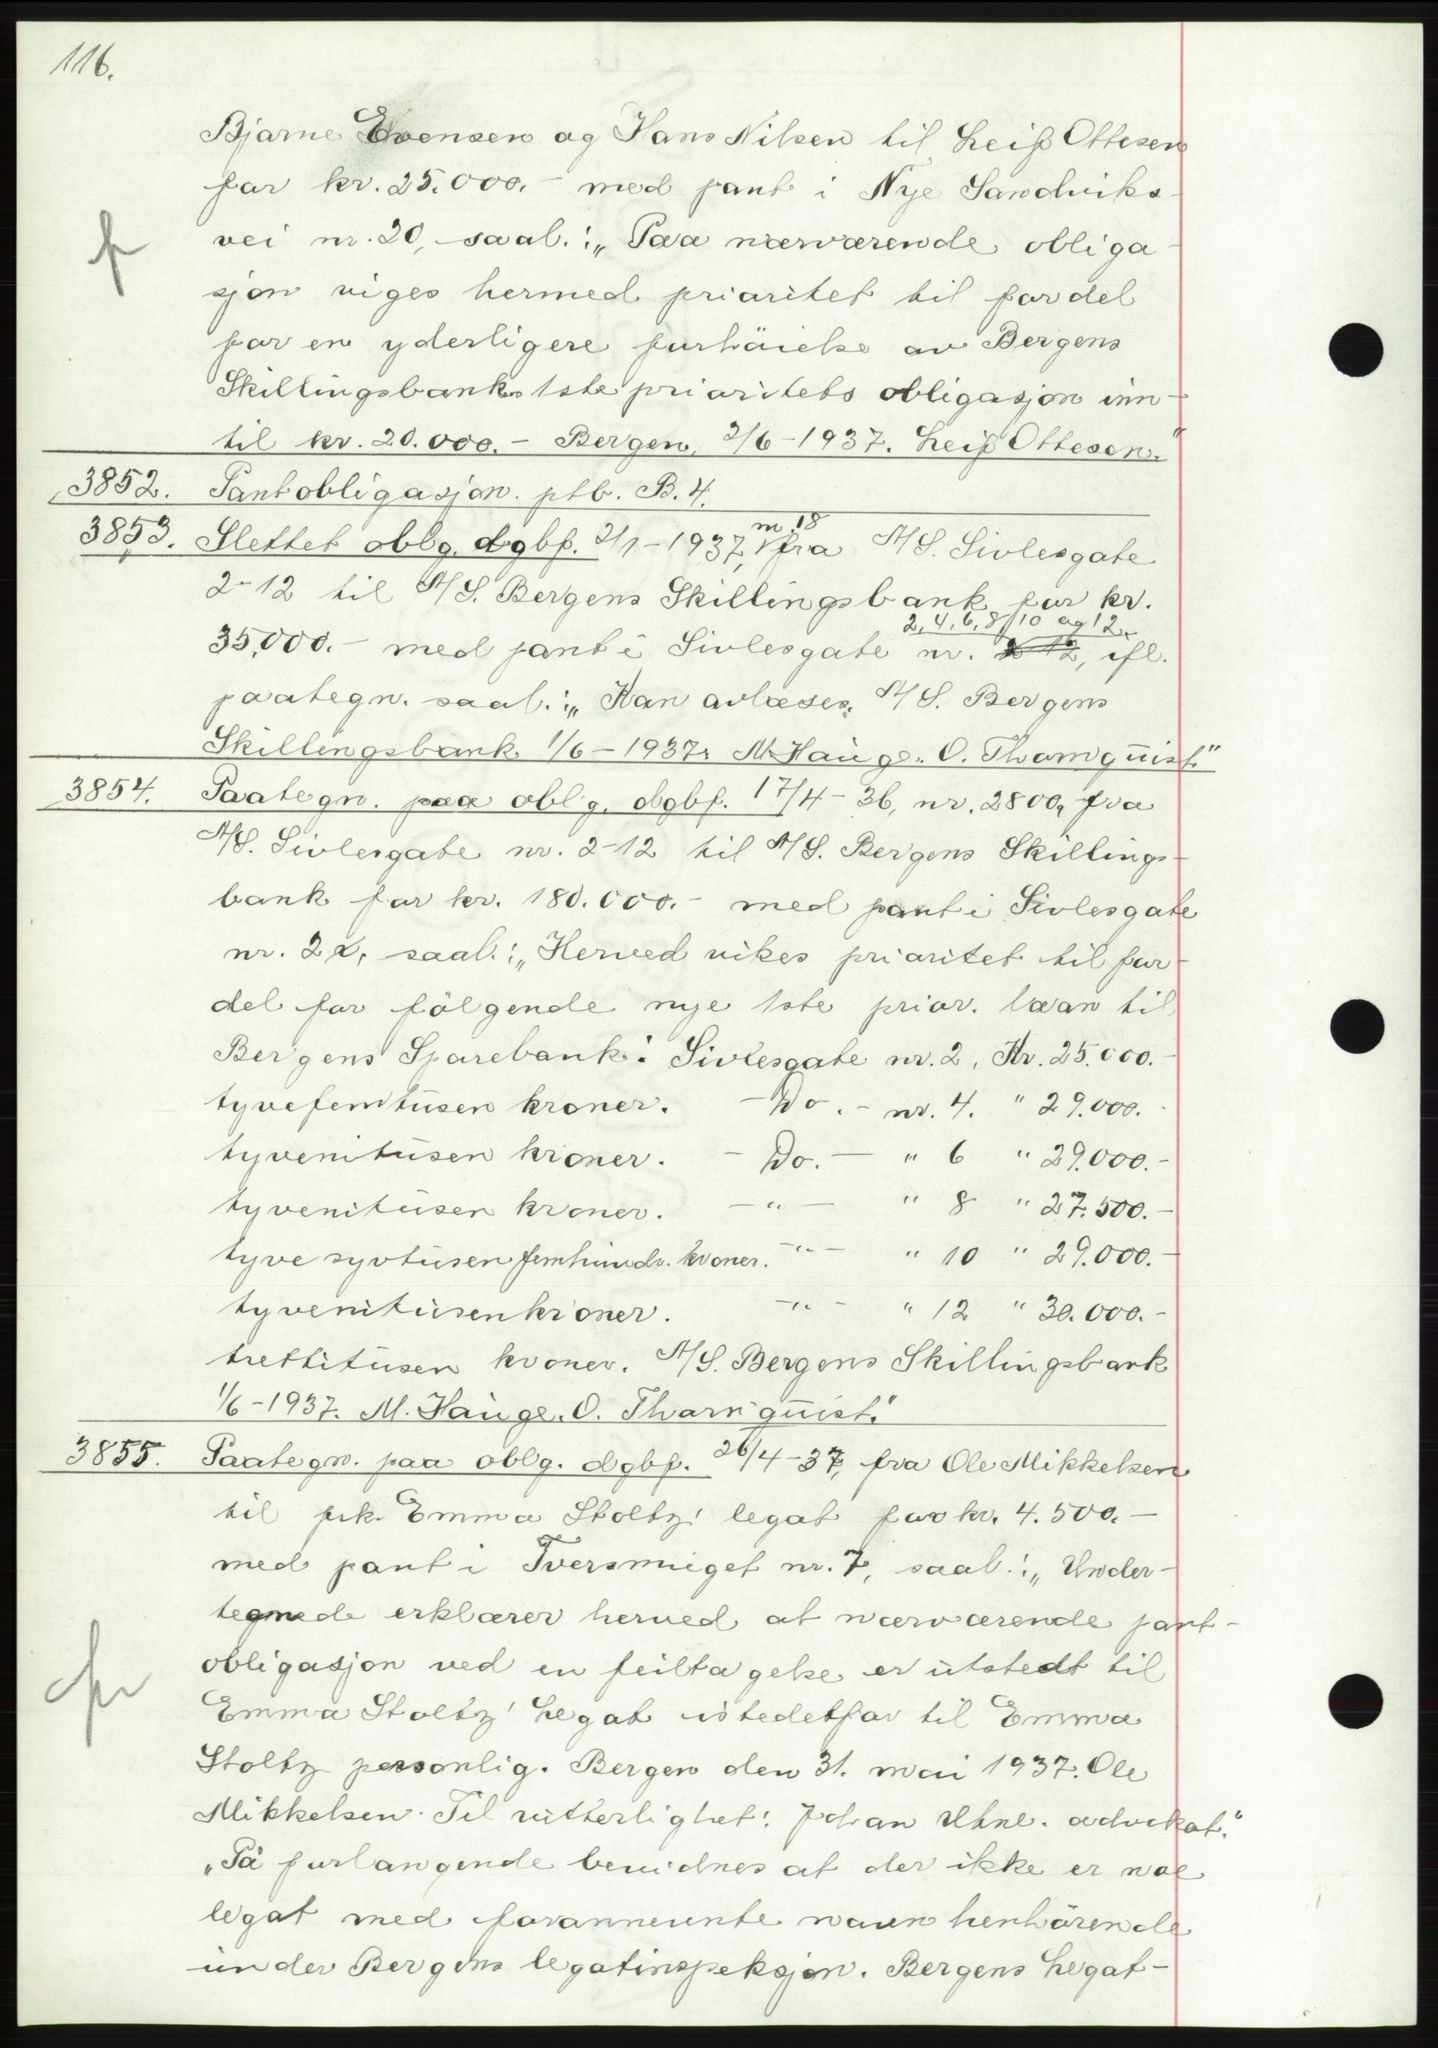 116.
Bjarne Evensen og Hans Nilsen til Leif Ottesen
for kr. 25.000.- med pant i Nye Sandviks-
vei nr. 20, saal.: „Paa nærværende obliga-
sjon viges hermed prioritet til fordel
for en yderligere forhöielse av Bergens
Skillingsbanks 1ste prioritets obligasjon inn-
til kr. 20.000.- Bergen, 2/6-1937. Leif Ottesen."
3852. Pantobligasjon. ptb. B.4.
3853. Slettet oblg. dgbf. 2/1-1937, nr 18 fra A/S. Sivlesgate
2-12 til A/S. Bergens Skillingsbank for kr.
2, 4, 6, 8, 10 og 12,
35,000.- med pant i Sivlesgate nr. 2-12, ifl.
paategn. saal.: „Kan avlæses. A/S. Bergens
Skillingsbank 1/6-1937. M. Hauge. O. Thornquist."
3854. Paategn. paa oblg. dgbf. 17/4-36, nr. 2800, fra
A/S. Sivlesgate nr. 2-12 til A/S. Bergens Skillings-
bank for kr. 180.000.- med pant i Sivlesgate
nr. 2, saal.: „Herved vikes prioritet til for-
del for fölgende nye 1ste prior. laan til
Bergens Sparebank: Sivlesgate nr. 2, Kr. 25.000.-
tyvefemtusen kroner. - Do. - nr. 4. " 29.000.-
tyvenitusen kroner. - Do. - " 6 " 29.000.-
tyvenitusen kroner. - " - " 8 " 27.500.-
tyve syvtusen femhundr. kroner. - " - " 10 " 29.000.-
tyvenitusen kroner. - " - " 12 " 30.000.-
trettitusen kroner. A/S. Bergens Skillingsbank
1/6-1937. M. Hauge. O. Thornquist."
3855. Paategn. paa oblg. dgbf. 26/4-37, fra Ole Mikkelsen
til frk. Emma Stoltz' legat for kr. 4.500.-
med pant i Tversmuget nr. 7, saal.: „Under-
tegnede erklærer herved at nærværende pant-
obligasjon ved en feiltagelse er utstedt til
Emma Stoltz' Legat istedetfor til Emma
Stoltz personlig. Bergen den 31. mai 1937. Ole
Mikkelsen. Til vitterlighet: Johan advokat."
„På forlangende bevidnes at der ikke er noe
legat med forannevnte navn henhörende
under Bergens legatinspeksjon. Bergens Legat-